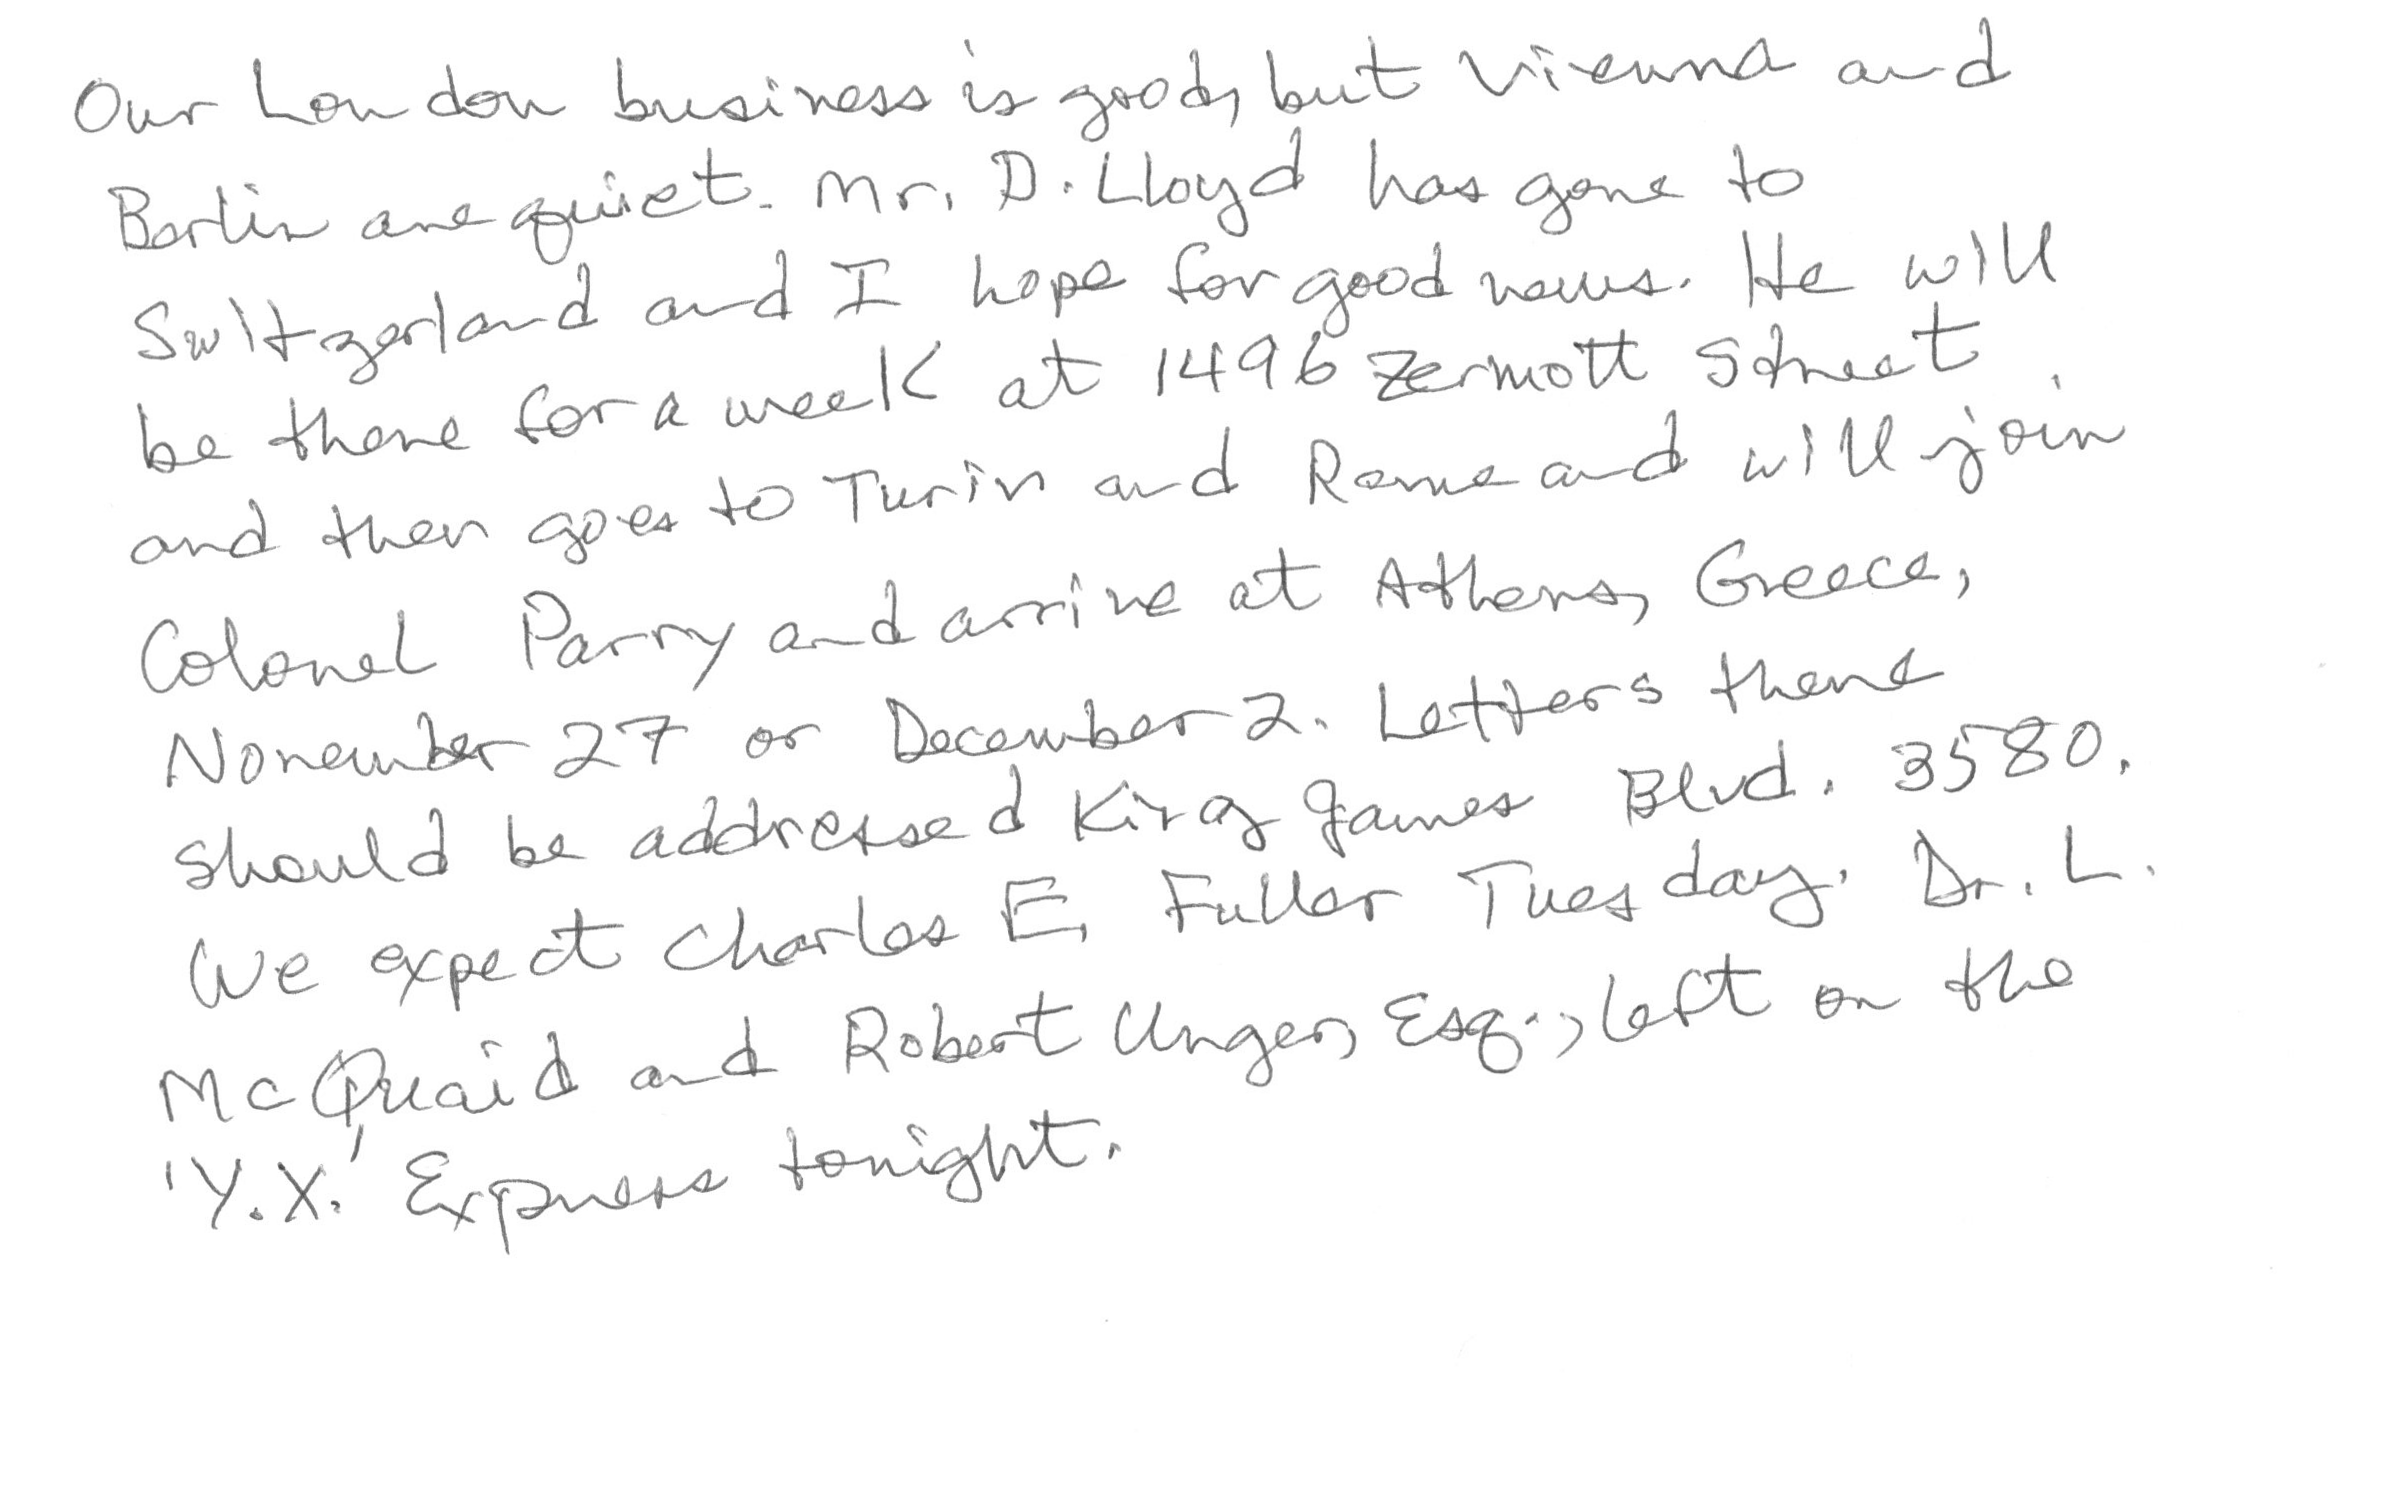 Our London business is good, but Vienna and
Berlin are quiet. Mr. D. Lloyd has gone to
Switzerland and I hope for good news. He will
be there for a week at 1496 Zermott Street
and then goes to Turin and Rome and will join
Colonel Parry and arrive at Athens, Greece,
November 27 or December 2. Letters there
should be addressed King James Blvd. 3580.
We expect Charles E. Fuller Tuesday. Dr. L.
McQuaid and Robert Unger, Esq., left on the
'Y.X.' Express tonight.